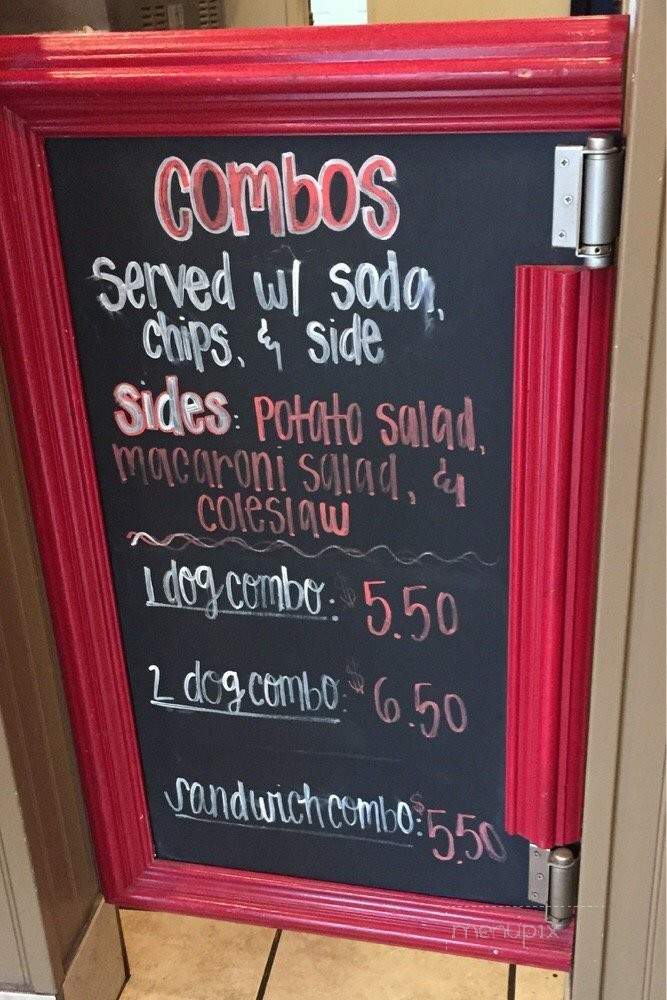 combos
Served w/ soda,
chips, & side
sides: potato salad,
macaroni salad, &
coleslaw
1 dog combo: $5.50
2 dog combo: $6.50
sandwich combo: $5.50
menupix